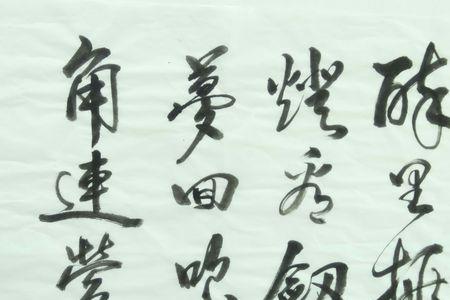 醉里挑
燈看劍
夢回吹
角連營